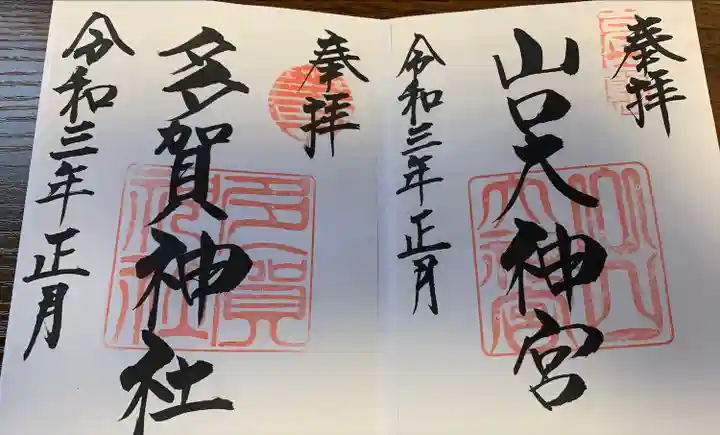 奉拝
山口大神宮
令和三年正月
奉拝
多賀神社
令和三年正月
多賀
神社